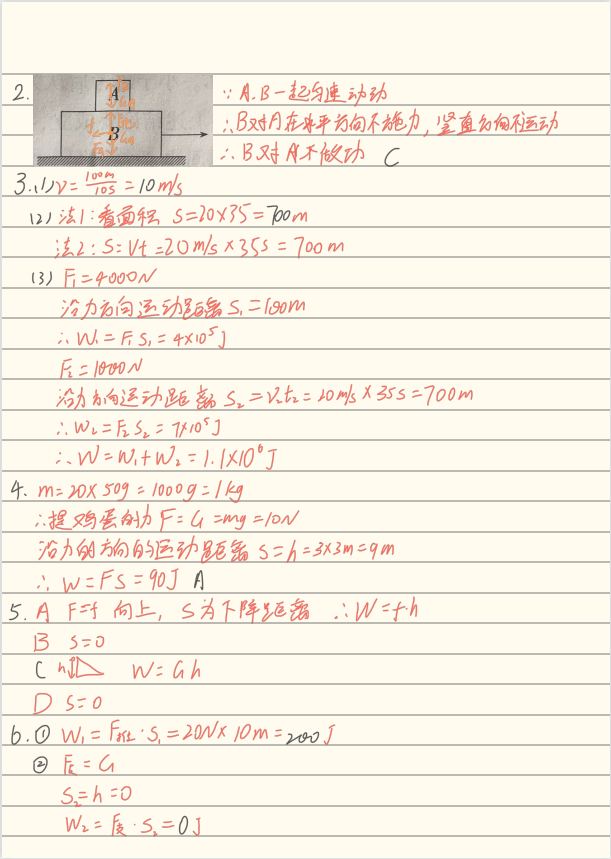 2. A B ∵ A.B一起匀速动动
∴B对A在水平方向不施力,竖直方向不运动
∴B对A不做功 C
3.(1)V=100m/10s=10m/s
(2)法1:看面积 S=20×35=700m
法2:S=Vt=20m/s×35s=700m
(3) F₁=4000N
沿力方向运动距离S₁=100m
∴W₁=F₁S₁=4×10⁵J
F₂=1000N
沿力方向运动距离S₂=V₂t₂=20m/s×35s=700m
∴W₂=F₂S₂=7×10⁵J
∴W=W₁+W₂=1.1×10⁶J
4. m=20×50g=1000g=1kg
∴提鸡蛋的力F=G=mg=10N
沿力的方向的运动距离S=h=3×3m=9m
∴W=FS=90J A
5. A F=f 向上,S为下降距离 ∴W=f·h
B S=0
C h W=Gh
D S=0
6.① W₁=F·S₁=20N×10m=200J
② F支=G
S₂=h=0
W₂=F支·S₂=0J